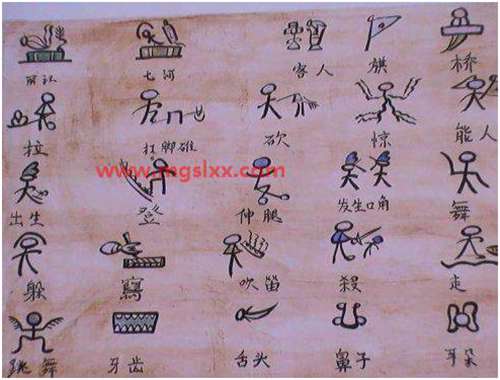 客人 旗 桥
拉 打脚碓 砍 惊 能人
www.mgslxx.com
出生 登 伸腿 发生口角 舞
躲 寫 吹笛 殺 走
跳舞 牙齿 舌头 鼻子 耳朵